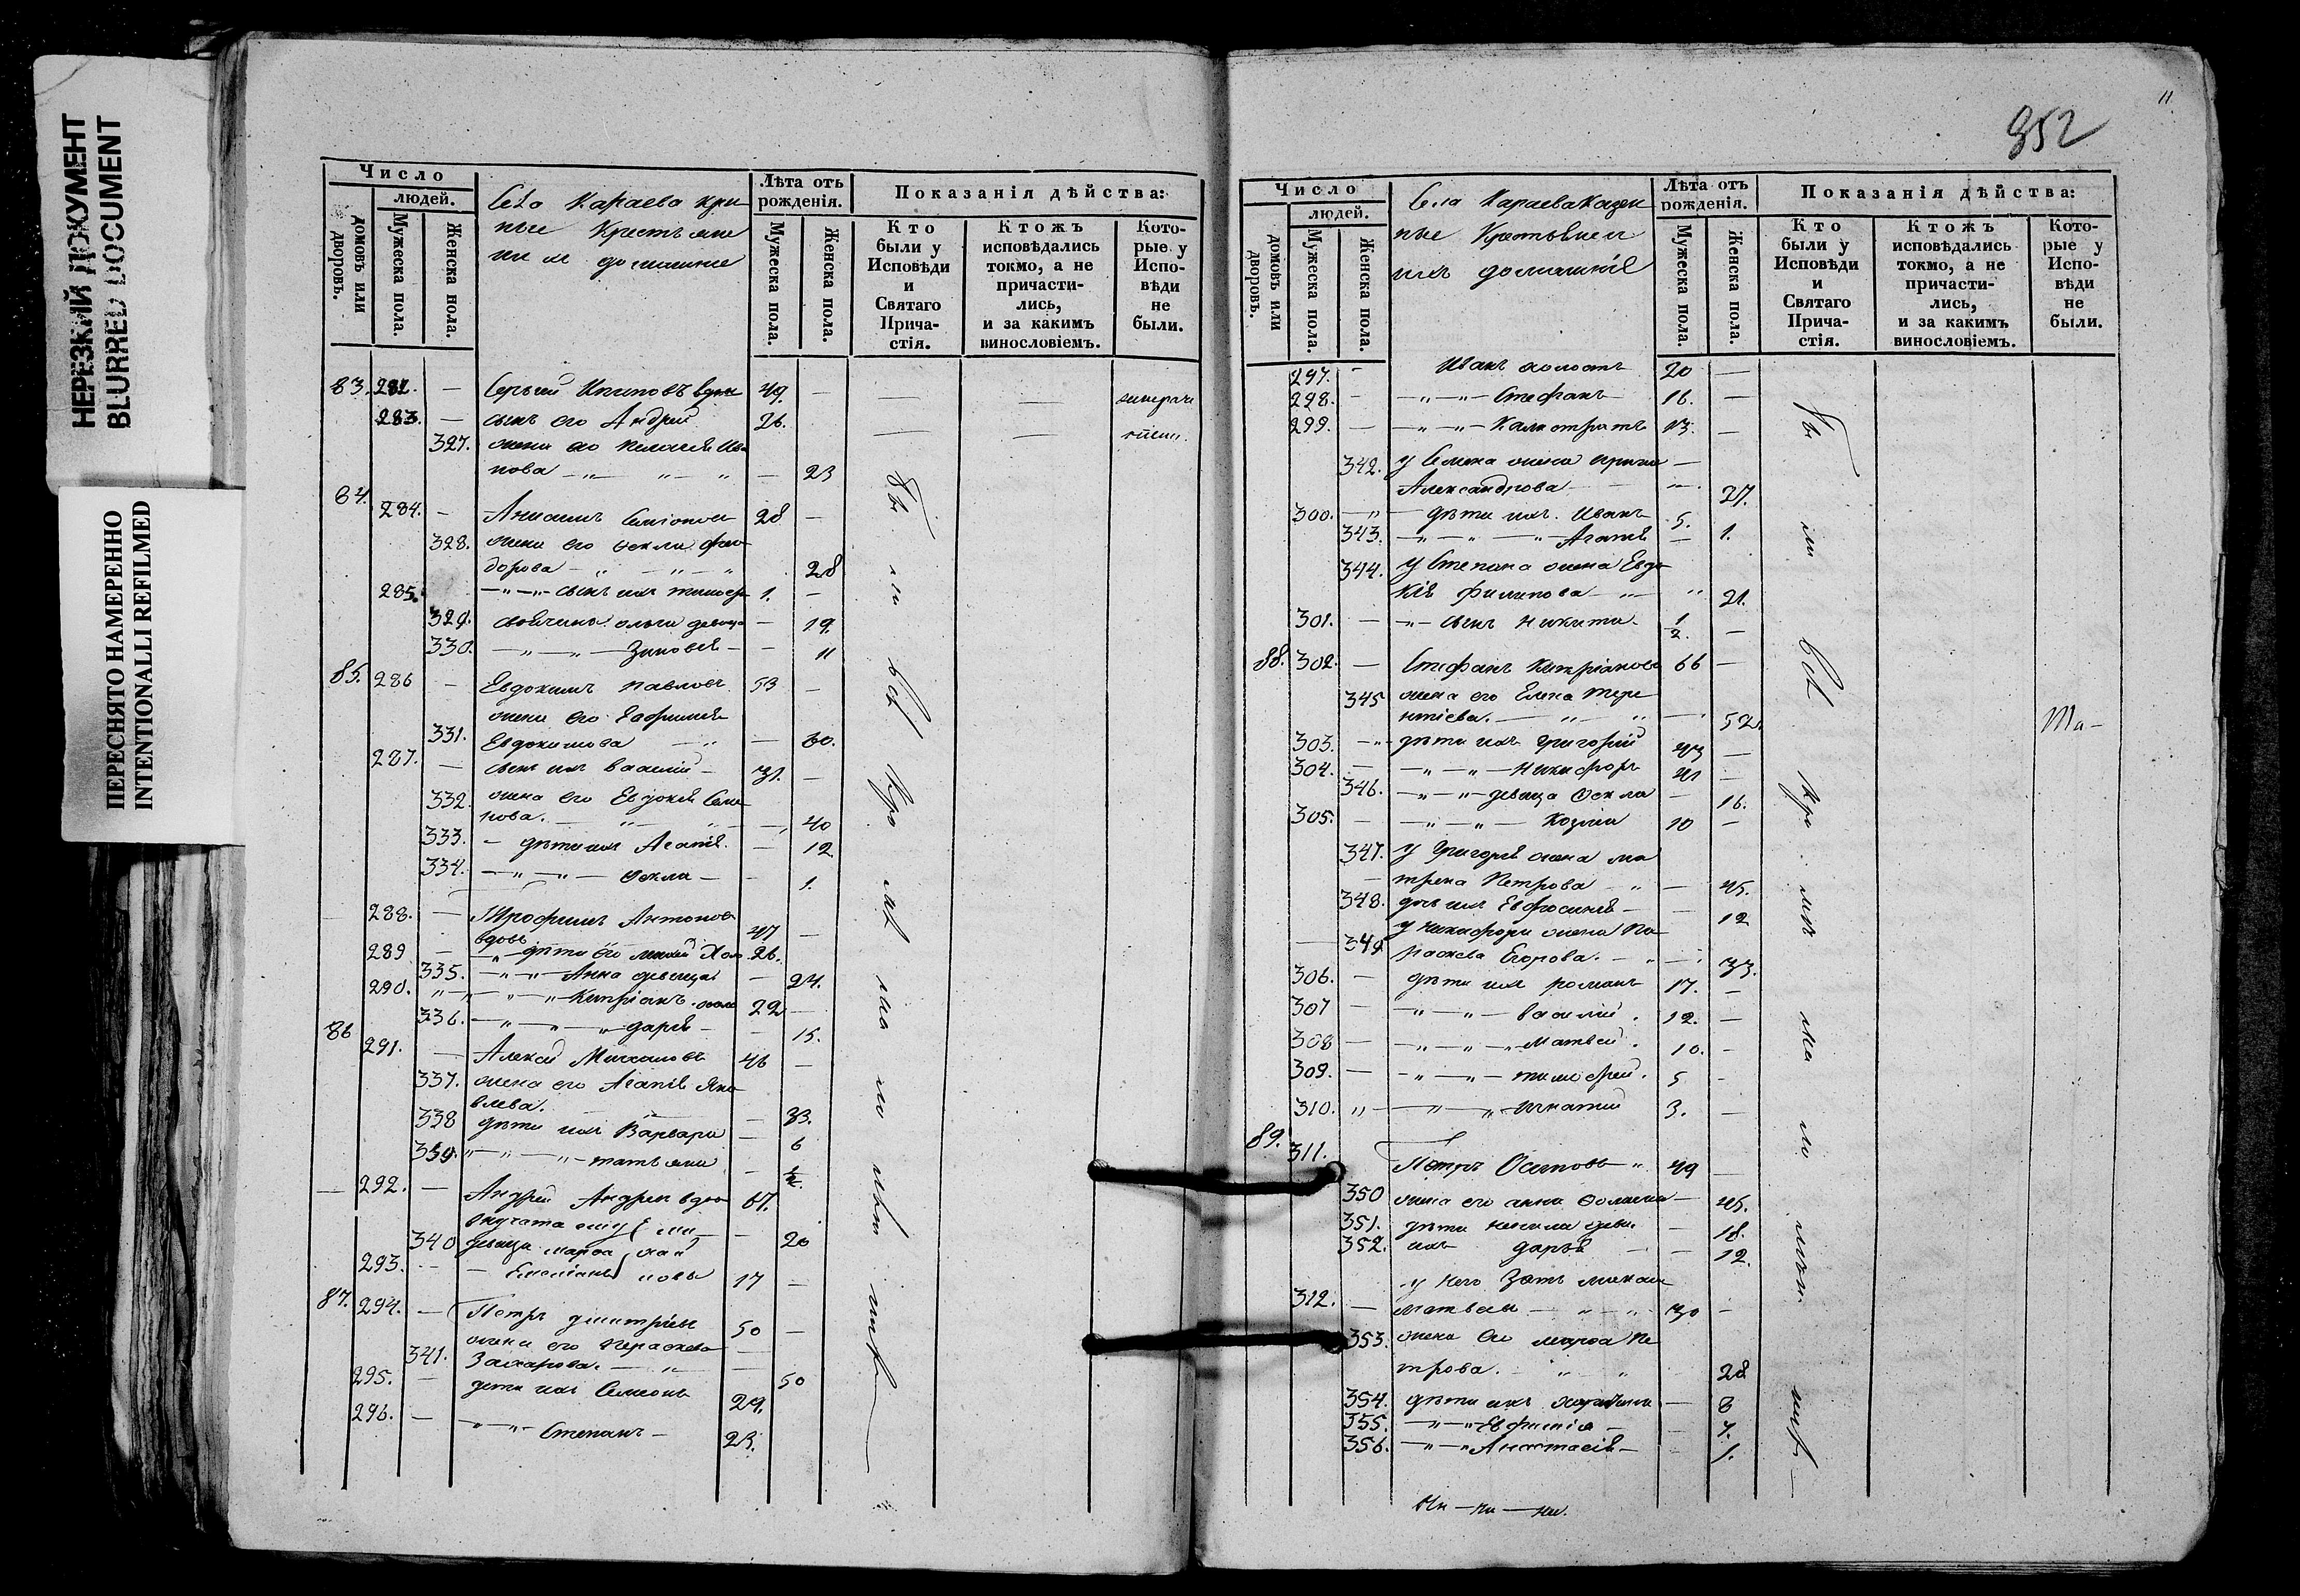 НЕРЕЗКИЙ ДОКУМЕНТ
BLURRED DOCUMENT
ПЕРЕСНЯТО НАМЕРЕННО
INTENTIONALLI REFILMED
Число
людей.
домовъ или дворовъ.
Мужеска пола.
Женска пола.
Села Караева
ные Крестьяне
их домашние
Лѣта отъ рожденія.
Мужеска пола.
Женска пола.
Показанія дѣйства:
Кто были у Исповѣди и Святаго Прича-стія.
Ктожъ исповѣдались токмо, а не причасти-лись, и за какимъ винословіемъ.
Кото-рые у Испо-вѣди не были.
83. 282. — Сергей вдов 49. —
283. — сынъ его Андрей 26.
327. жена его Пелагея Ива
нова — 23
84. 284. — Анисимъ Семионов 28 —
328. жена его Фекла Фео
дорова 28
285. сынъ их Тимофе 1. —
329. Ольга девица — 19.
330. Зиновея — 11
85. 286 — Евдокимъ Павловъ 53 —
жена его Евфимия
331. Евдокимова — 30.
287. — сынъ их Василий 31. —
332. жена его Евдокея Семе
нова. — 40
333. — дѣти их Агапия. — 12
334. Фекла — 1.
288. — Трофимъ Антонов
вдовъ 47 —
289 — дѣти его Хол 26.
335. Анна девица — 24.
290. Киприанъ 22 —
336. Дария — 15.
86 291. — Алексей Михаиловъ 46 —
337. жена его Агапия Яко
влева. — 33.
338 дѣти их Варвара — 6
339. Татьяна — 1/2.
292. — Андрей Андреев вдов 67.
внучата
340 девица Марфа — 20
293. — Емелианъ 17 —
87. 294. — Петръ Дмитриевъ 50 —
341. жена его Параскева
Захарова. — 50
295. — дети их Семионъ 29.
296. — Степанъ — 23.
11
352
Число
людей.
домовъ или дворовъ.
Мужеска пола.
Женска пола.
Села Караева Казен
ные Крестьяне и
ихъ домашнiе
Лѣта отъ рожденія.
Мужеска пола.
Женска пола.
Показанія дѣйства:
Кто были у Исповѣди и Святаго Прича-стія.
Ктожъ исповѣдались токмо, а не причасти-лись, и за какимъ винословіемъ.
Кото-рые у Испо-вѣди не были.
297. — Иванъ холостъ 20 —
298. — Стефанъ 16. —
299. — Калистратъ 13. —
342. у Семена жена Ирина —
Александрова 27.
300. дѣти их. Иванъ 5.
343. Агапия — 1.
344. у Степана жена Евдо
кия Филипова 21.
301. — сынъ Никита 1/2. —
88. 302. — Стефанъ Киприановъ 66 —
345 жена его Елена Тере
нтiева. — 52.
303. дѣти ихъ Григорий 43 —
304. — Никифоръ 41 —
346. девица Фекла — 16.
305. — Козма 10 —
347. у Григория жена Ма
трена Петрова — 45.
348. дочь их Евфросиния — 12
у Никифора жена Па
349 раскева Егорова. — 33.
306. — дѣти их Романъ 17. —
307 — Василий. 12. —
308 — Матвей. 10. —
309. — Тимофей. 5 —
310. Игнатий 3. —
89. 311. Петръ Осиповъ 49 —
350 жена его Анна Фомина — 45.
351. дѣти деви. — 18.
352. их Дарья — 12.
у него Зять Михаил
312. — Матвеев 30 —
353. жена его Марфа Пе
трова. — 28
354. дѣти ихъ — 8
355. Евфимiя — 4.
356. Анастасiя — 1.